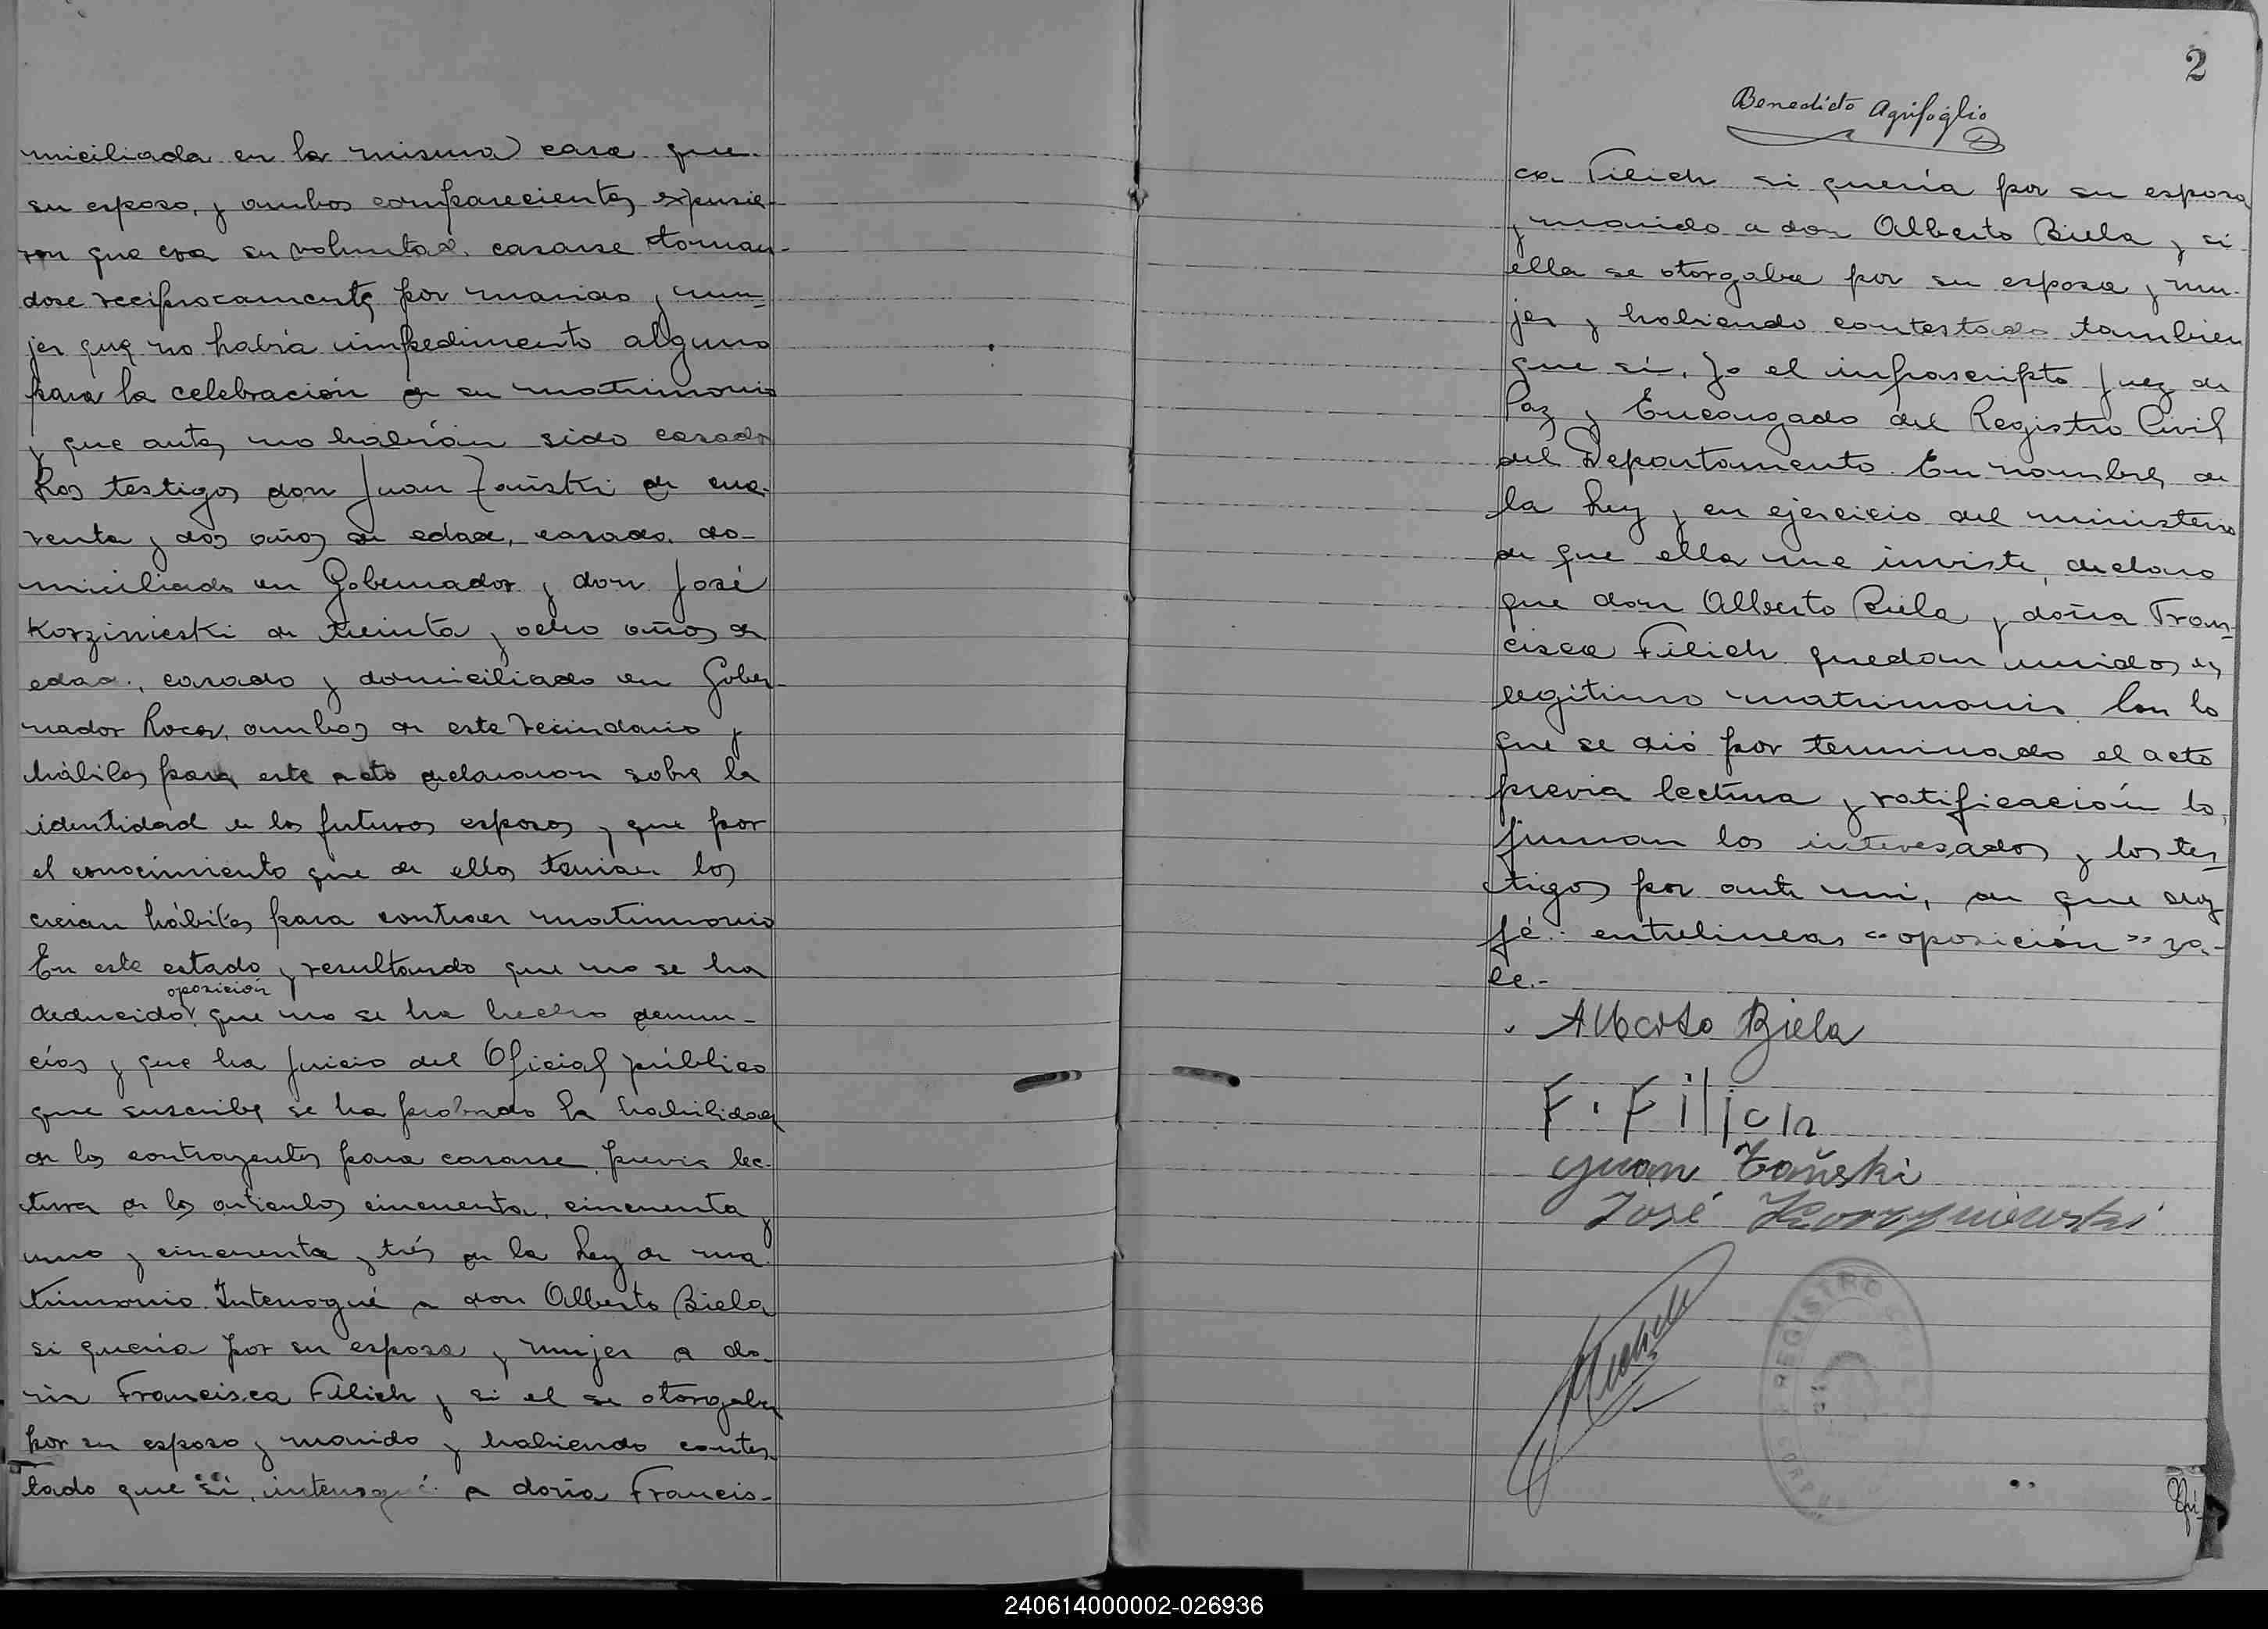 miciliada en la misma casa que
su esposo, y ambos comparecientes expusie-
ron que era su voluntad casarse toman-
dose reciprocamente por marido y mu-
jer que no habia impedimento alguno
para la celebración de su matrimonio
y que antes no habían sido casados
Los testigos don Juan Zañski de cua-
renta y dos años de edad, casado, do-
miciliado en Gobernador y don José
Korzinieski de treinta y ocho años de
edad, casado y domiciliado en Gober-
nador Roca, ambos de este vecindario y
hábiles para este acto declararon sobre la
identidad de los futuros esposos y que por
el conocimiento que de ellos tenian los
creian hábiles para contraer matrimonio
En este estado y resultando que no se ha
oposición
deducido que no se ha hecho denun-
cias y que ha juicio del Oficial público
que suscribe se ha probado la habilidad
de los contrayentes para casarse, previa lec-
tura de los articulos cincuenta, cincuenta y
uno y cincuenta y trés de la Ley de ma-
trimonio. Interrogué a don Alberto Biela
si queria por su esposa y mujer a do-
ña Francisca Filich y si el se otorgaba
por su esposo y marido y habiendo contes-
tado que si, interrogué a doña Francis-
2
Benedicto Agrifoglio
ca Filich si quería por su esposo
y marido a don Alberto Biela y si
ella se otorgaba por su esposa y mu-
jer y habiendo contestado tambien
que sí, Yo el infrascripto Juez de
Paz y Encargado del Registro Civil
del Departamento. En nombre de
la Ley y en ejercicio del ministerio
de que ella me inviste, declaro
que don Alberto Biela y doña Fran-
cisca Filich quedan unidos en
legitimo matrimonio. Con lo
que se dió por terminado el acto
previa lectura y ratificación lo
firman los interesados y los tes-
tigos por ante mi, de que doy
fé.- entrelineas "oposición" va-
le.-
Alberto Biela
F. Filich
Juan Zañski
José Korzyniewski
REGISTRO
240614000002-026936